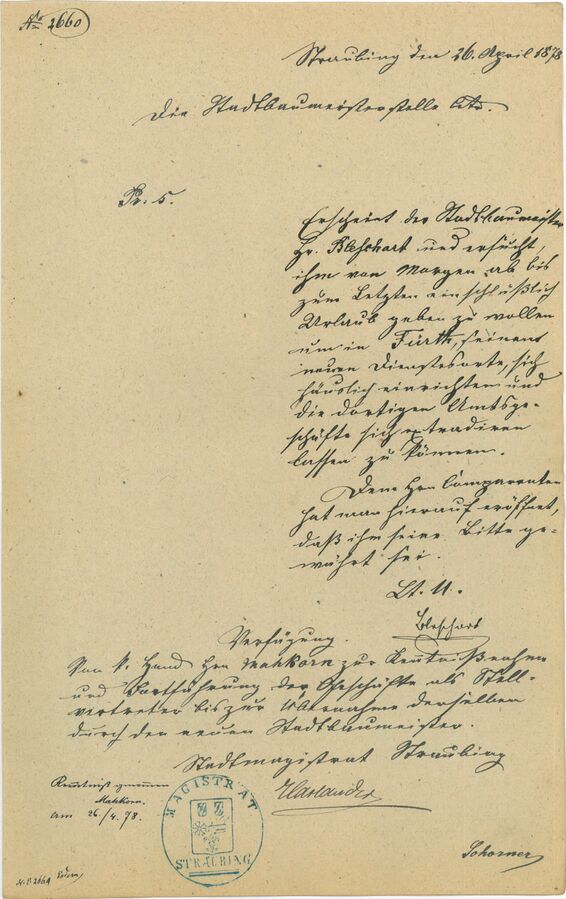 No 2660
Straubing den 26. April 1878
Die Stadtbaumeisterstelle btr.
Pr. 5.
Erscheint der Stadtbaumeister
Hr. Bleschart und ersucht,
ihm von Morgen ab bis
zum Letzten einschlüßlich
Urlaub geben zu wollen
um in Fürth, seinem
neuen Dienstesorte, sich
häuslich einrichten und
die dortigen Amtsge-
schäfte sich extradiren
lassen zu können.
Dem Hrn Comparenten
hat man hierauf eröffnet,
daß ihm seine Bitte ge-
währt sei.
Lt. U.
Bleschart
Verfügung.
Von k. Hand Hrn Mahkorn zur Kentnißnahme
und Fortführung der Geschäfte als Stell-
vertreter bis zur Übernahme derselben
durch den neuen Stadtbaumeister.
Stadtmagistrat Straubing
Harlander
Kenntniß genommen
Mahkorn.
am 26/4. 78.
MAGISTRAT
STRAUBING
Schorner